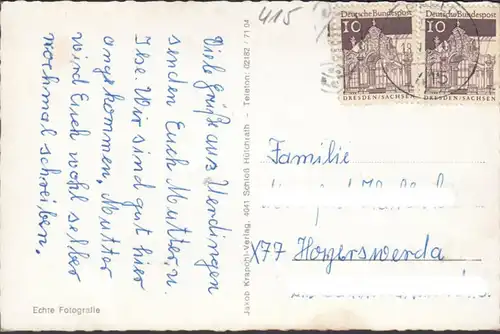 415
Deutsche Bundespost Deutsche Bundespost
10 10
DRESDEN/SACHSEN DRESDEN/SACHSEN
Viele Grüße aus Uerdingen
senden Euch Mutter, u.
Ilse. Wir sind gut hier
angekommen, Mutter
wird Euch wohl selber
nochmal schreiben.
Echte Fotografie
Jakob Krapohl-Verlag, 4041 Schloß Hülchrath - Telefon: 02182 / 71 04
Familie
X77 Hoyerswerda